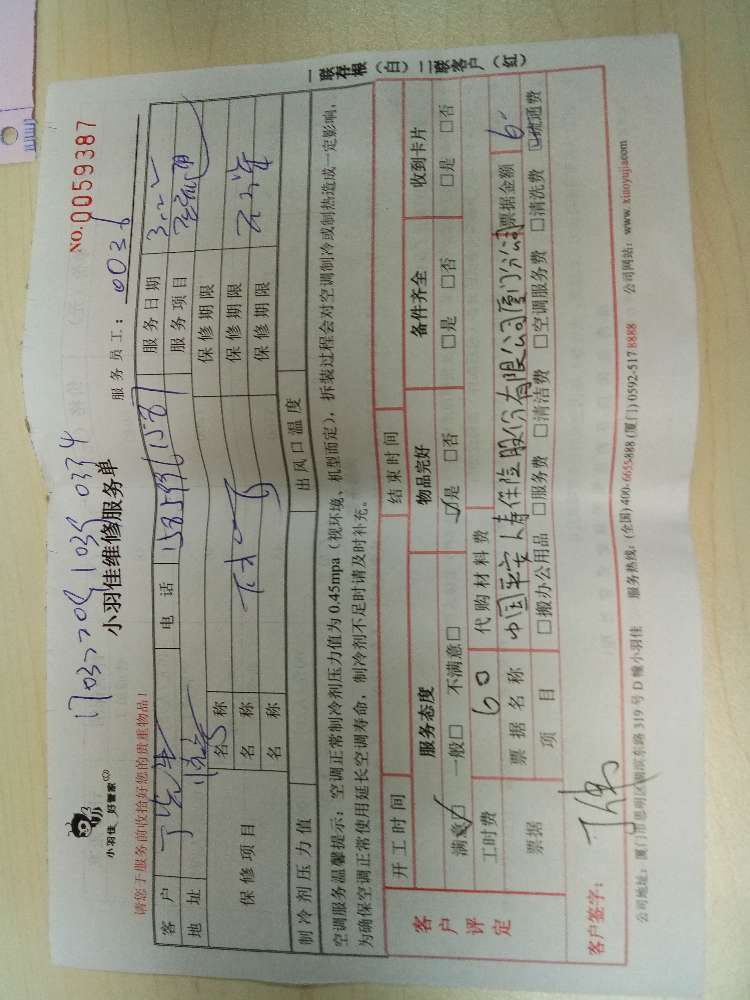 17032208103S0334
小羽佳 好管家
小羽佳维修服务单
NO.0059387
服务员工：0036
请您于服务前收拾好您的贵重物品！
客户 丁先生 电话 服务日期
地址 服务项目
保修项目 名称 保修期限
名称 保修期限
名称 保修期限
制冷剂压力值 出风口温度
空调服务温馨提示：空调正常制冷剂压力值为0.45mpa（视环境、机型而定），拆装过程会对空调制冷或制热造成一定影响，
为确保空调正常使用延长空调寿命，制冷剂不足时请及时补充。
一联存根（白）二联客户（红）
客户评定
开工时间 结束时间
服务态度 物品完好 备件齐全 收到卡片
满意☑ 一般□ 不满意□ ☑是 □否 □是 □否 □是 □否
工时费 60 代购材料费
票据 票据名称 中国平安人寿保险股份有限公司厦门分公司 票据金额 60
项目 □搬办公用品 □服务费 □清洁费 □空调服务费 □清洗费 ☑疏通费
客户签字：
公司地址：厦门市思明区湖滨东路319号D幢小羽佳 服务热线：(全国) 400-6655-888 (厦门) 0592-517 8888 公司网站：www.xiaoyujia.com